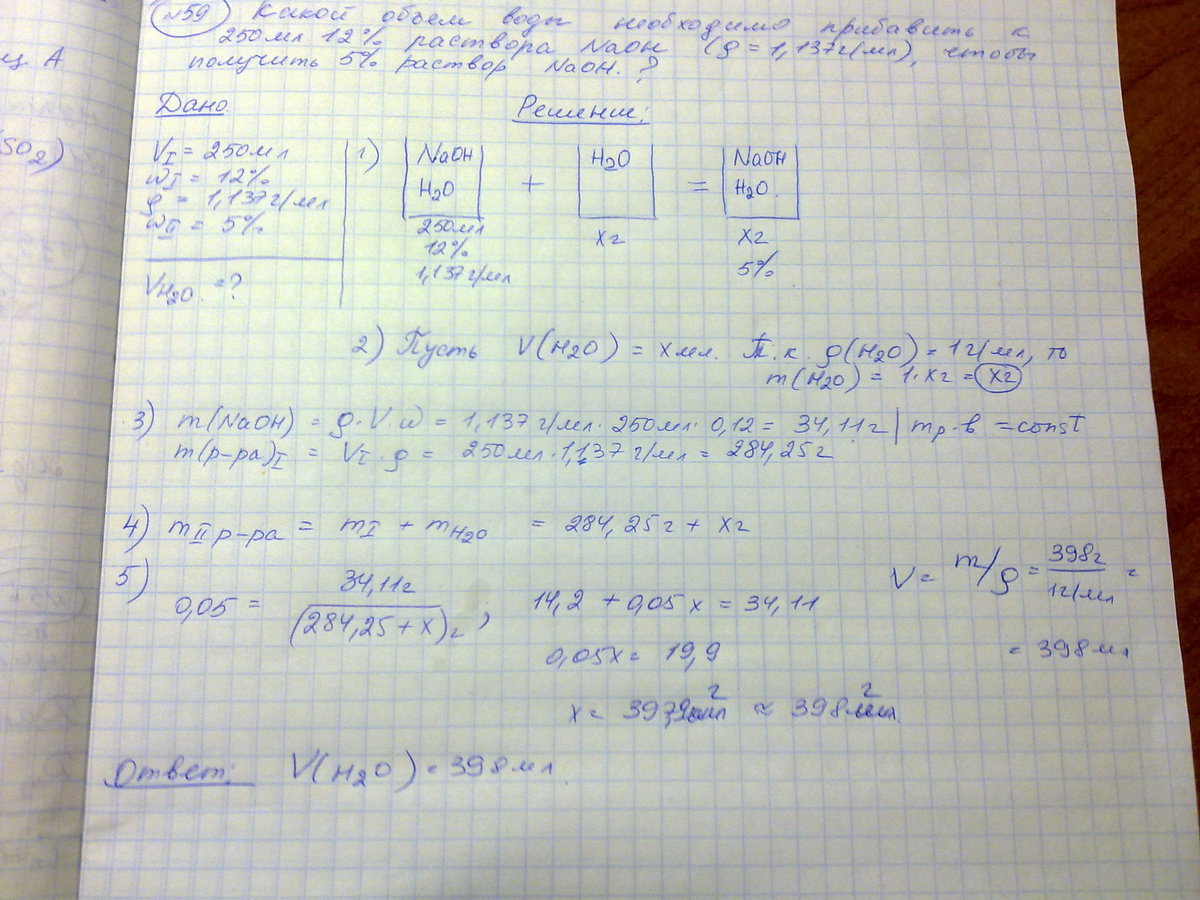 №59 Какой объем воды необходимо прибавить к
250мл 12% раствора NaOH (ρ = 1,137г/мл), чтобы
получить 5% раствор NaOH.?
А
SO₂)
Дано
Решение:
V_I = 250мл
ω_I = 12%
ρ = 1,137г/мл
ω_II = 5%
V_H₂O = ?
1) NaOH H₂O NaOH
H₂O + = H₂O.
250мл xг xг
12% 5%
1,137г/мл
2) Пусть V(H₂O) = x мл. Т.к. ρ(H₂O) = 1г/мл, то
m(H₂O) = 1·xг = xг
3) m(NaOH) = ρ·V·ω = 1,137г/мл·250мл·0,12 = 34,11г | m р.в = const
m(р-ра)_I = V_I·ρ = 250мл·1,137г/мл = 284,25г
4) m_II р-ра = m_I + m_H₂O = 284,25г + xг
5) 0,05 = 34,11г / (284,25+x)г , 14,2 + 0,05x = 34,11
0,05x = 19,9
x = 397,9г ≈ 398г
V = m/ρ = 398г / 1г/мл =
= 398мл
Ответ: V(H₂O) = 398мл.